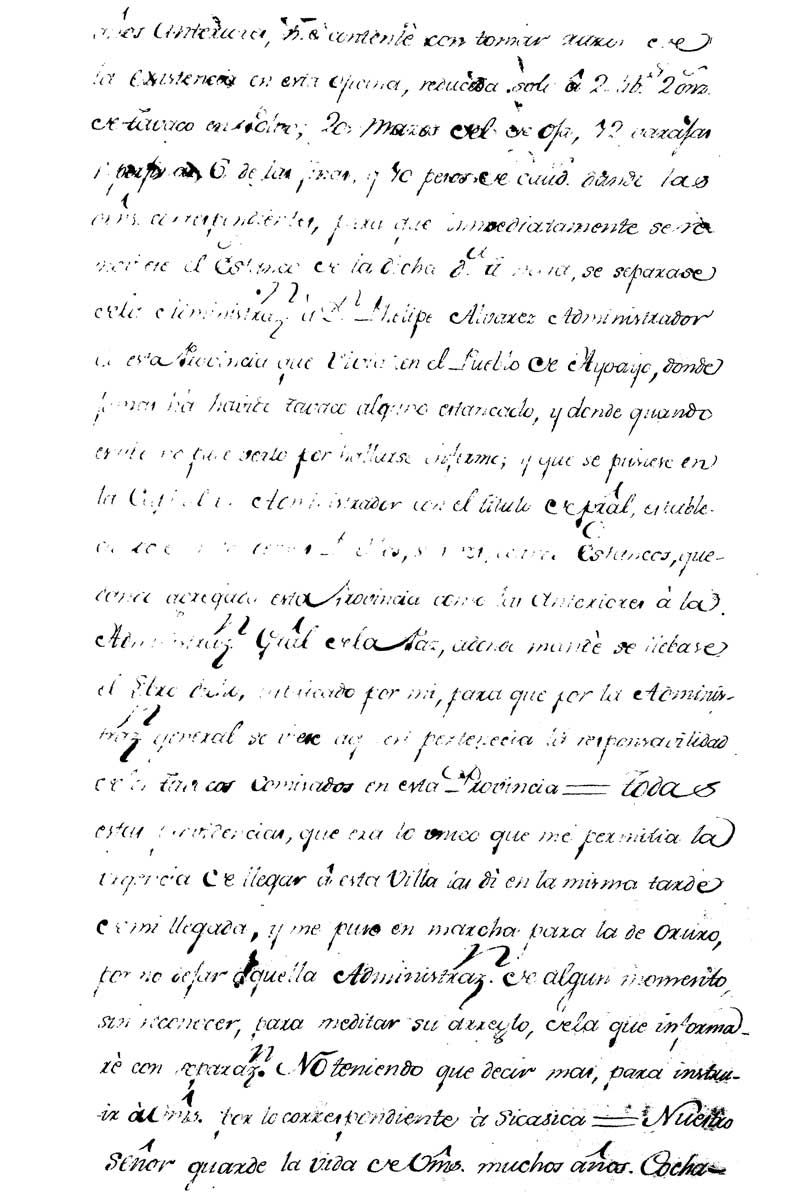 años Anterior, me contentè con tomar razon de
la Existencia en esta oficina, reducida solo â 2 lib.s 2 onz.
de tavaco en polvo; 20 Mazos del de oja, 12
6 de las finas, y 10 pesos de caud. dando las
correspondientes, para que inmediatamente se re
el Estanco de la dicha, se separase
de la Administraz.n à D.n Phelipe Alvarez Administrador
de esta Provincia que vive en el Pueblo de Ayoayo, donde
jamas ha havido tavaco alguno estancado, y donde quando
estube no pude verlo por hallarse enfermo; y que se pusiese en
la Capital un Administrador con el titulo de pral, estable-
Estancos, que-
agregada esta Provincia como las Anteriores à la
Administraz.n Gral de la Paz, adonde mandè se llebase
el por mi, para que por la Adminis-
traz.n general se viese aq. en pertenecia la responsavilidad
de los tavacos Comisados en esta Provincia = Todas
estas providencias, que era lo unico que me permitia la
urgencia de llegar à esta Villa las di en la misma tarde
de mi llegada, y me puse en marcha para la de Oruro,
por no dejar aquella Administraz.n de algun momento,
sin reconocer, para meditar su arreglo, de la que informa-
rè con separaz.n No teniendo que decir mas, para instru-
ir à Vms. por lo correspondiente à Sicasica = Nuestro
Señor guarde la vida de Vms. muchos años. Cocha-